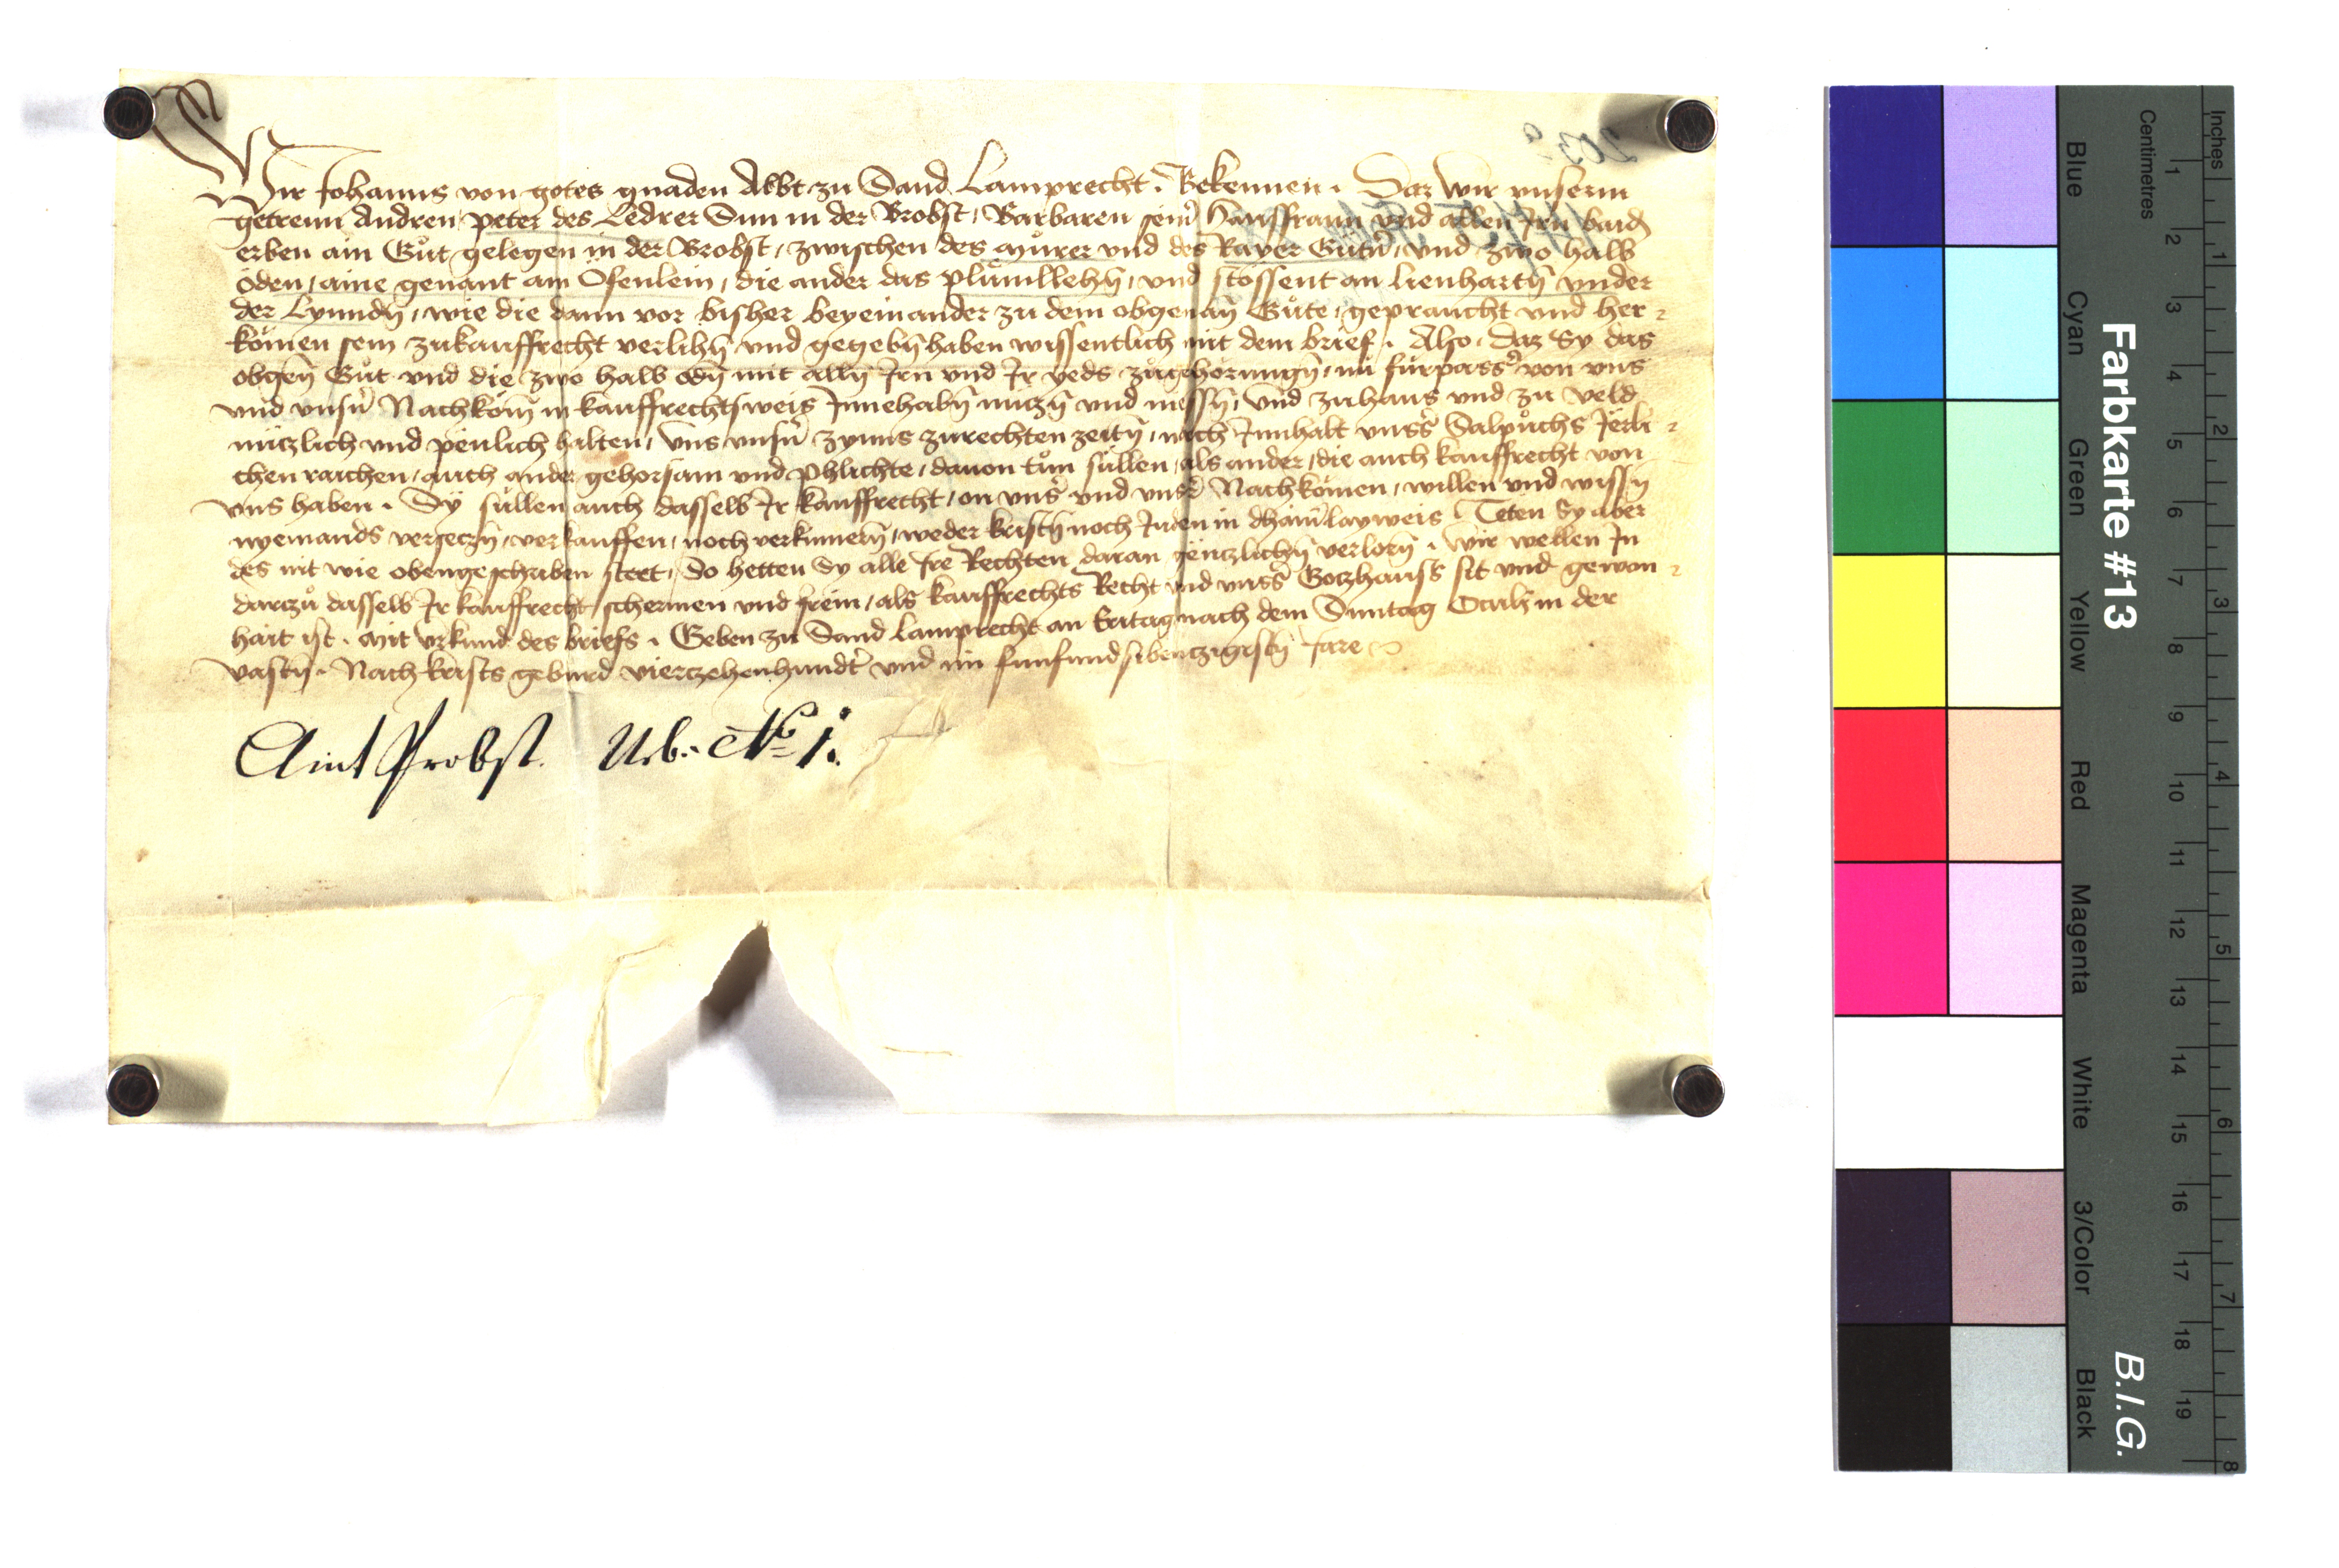 Wir Johanns von gotes gnaden Abbt zu Sand Lamprecht. Bekennen. Daz wir vnserm
getrewn Andren, peter des Ledrer Sun in der Brobst, Barbaren seinˀ Hawsfrawn vnd allen Irn baidn̄
erben ain Gůt gelegen in der Brobst, zwischen des Mürer vnd des Rayer Gütn̄, vnd zwo halb
öden, aine genant am Ofenlein, die ander das plůmllehn̄, vnd stossent an Lienhartn̄ vnder
der Lynndn̄, wie die dann vor bisher beyeinander zu dem obgenan̄ Gůte, gepraucht vnd her-
kömen sein zukauffrecht verlihn̄ vnd gegebn̄ haben wissentlich mit dem brief. Also, daz Sy das
obgen̄ Gůt vnd die zwo halb ödn̄ mit alln̄ Irn vnd Ir yeds zůgehörungn̄, nu fürpassˀ von vns
vnd vnsn̄ Nachkom̄ in kauffrechtsweis Innehabn̄ nuczn̄ vnd niessn̄, vnd zuhaus vnd zu veld
nüczlich vnd pewlich halten, vns vnsn̄ zynns zurechten zeitn̄, nach Innhalt vnsˀs Salpůchs Jërli-
chen raichen, auch ander gehorsam vnd phlichte, dauon tůn süllen, als ander, die auch kauffrecht von
vns haben. Sy süllen auch dasselb Ir kauffrecht, on vnsˀ vnd vnsˀ Nachkömen, willen vnd wissn̄
nyemands verseczn̄, verkauffen, noch verkumern̄, weder kristn̄ noch Juden in dhainˀlayweis Teten Sy aber
des nit wie obengeschriben steet, So hetten Sy alle Ire Rechten daran gënczlichn̄ verlorn̄. Wir wellen In
darczů dasselb Ir kauffrecht, schermen vnd frein, als kauffrechts Recht vnd vnsˀs Gotzhauss sit vnd gewon-
hait ist. Mit vrkund des briefs. Geben zu Sand Lamprecht an Eritag nach dem Suntag Oculi in der
vastn̄. Nach krists geburd vierczehenhundˀt vnd im funfundsibenczigistn̄ Jare
Amt Probst. Urb. No. 1.
Farbkarte #13
B.I.G.
Centimetres
Inches
Blue
Cyan
Green
Yellow
Red
Magenta
White
3/Color
Black
1 2 3 4 5 6 7 8 9 10 11 12 13 14 15 16 17 18 19
1 2 3 4 5 6 7 8